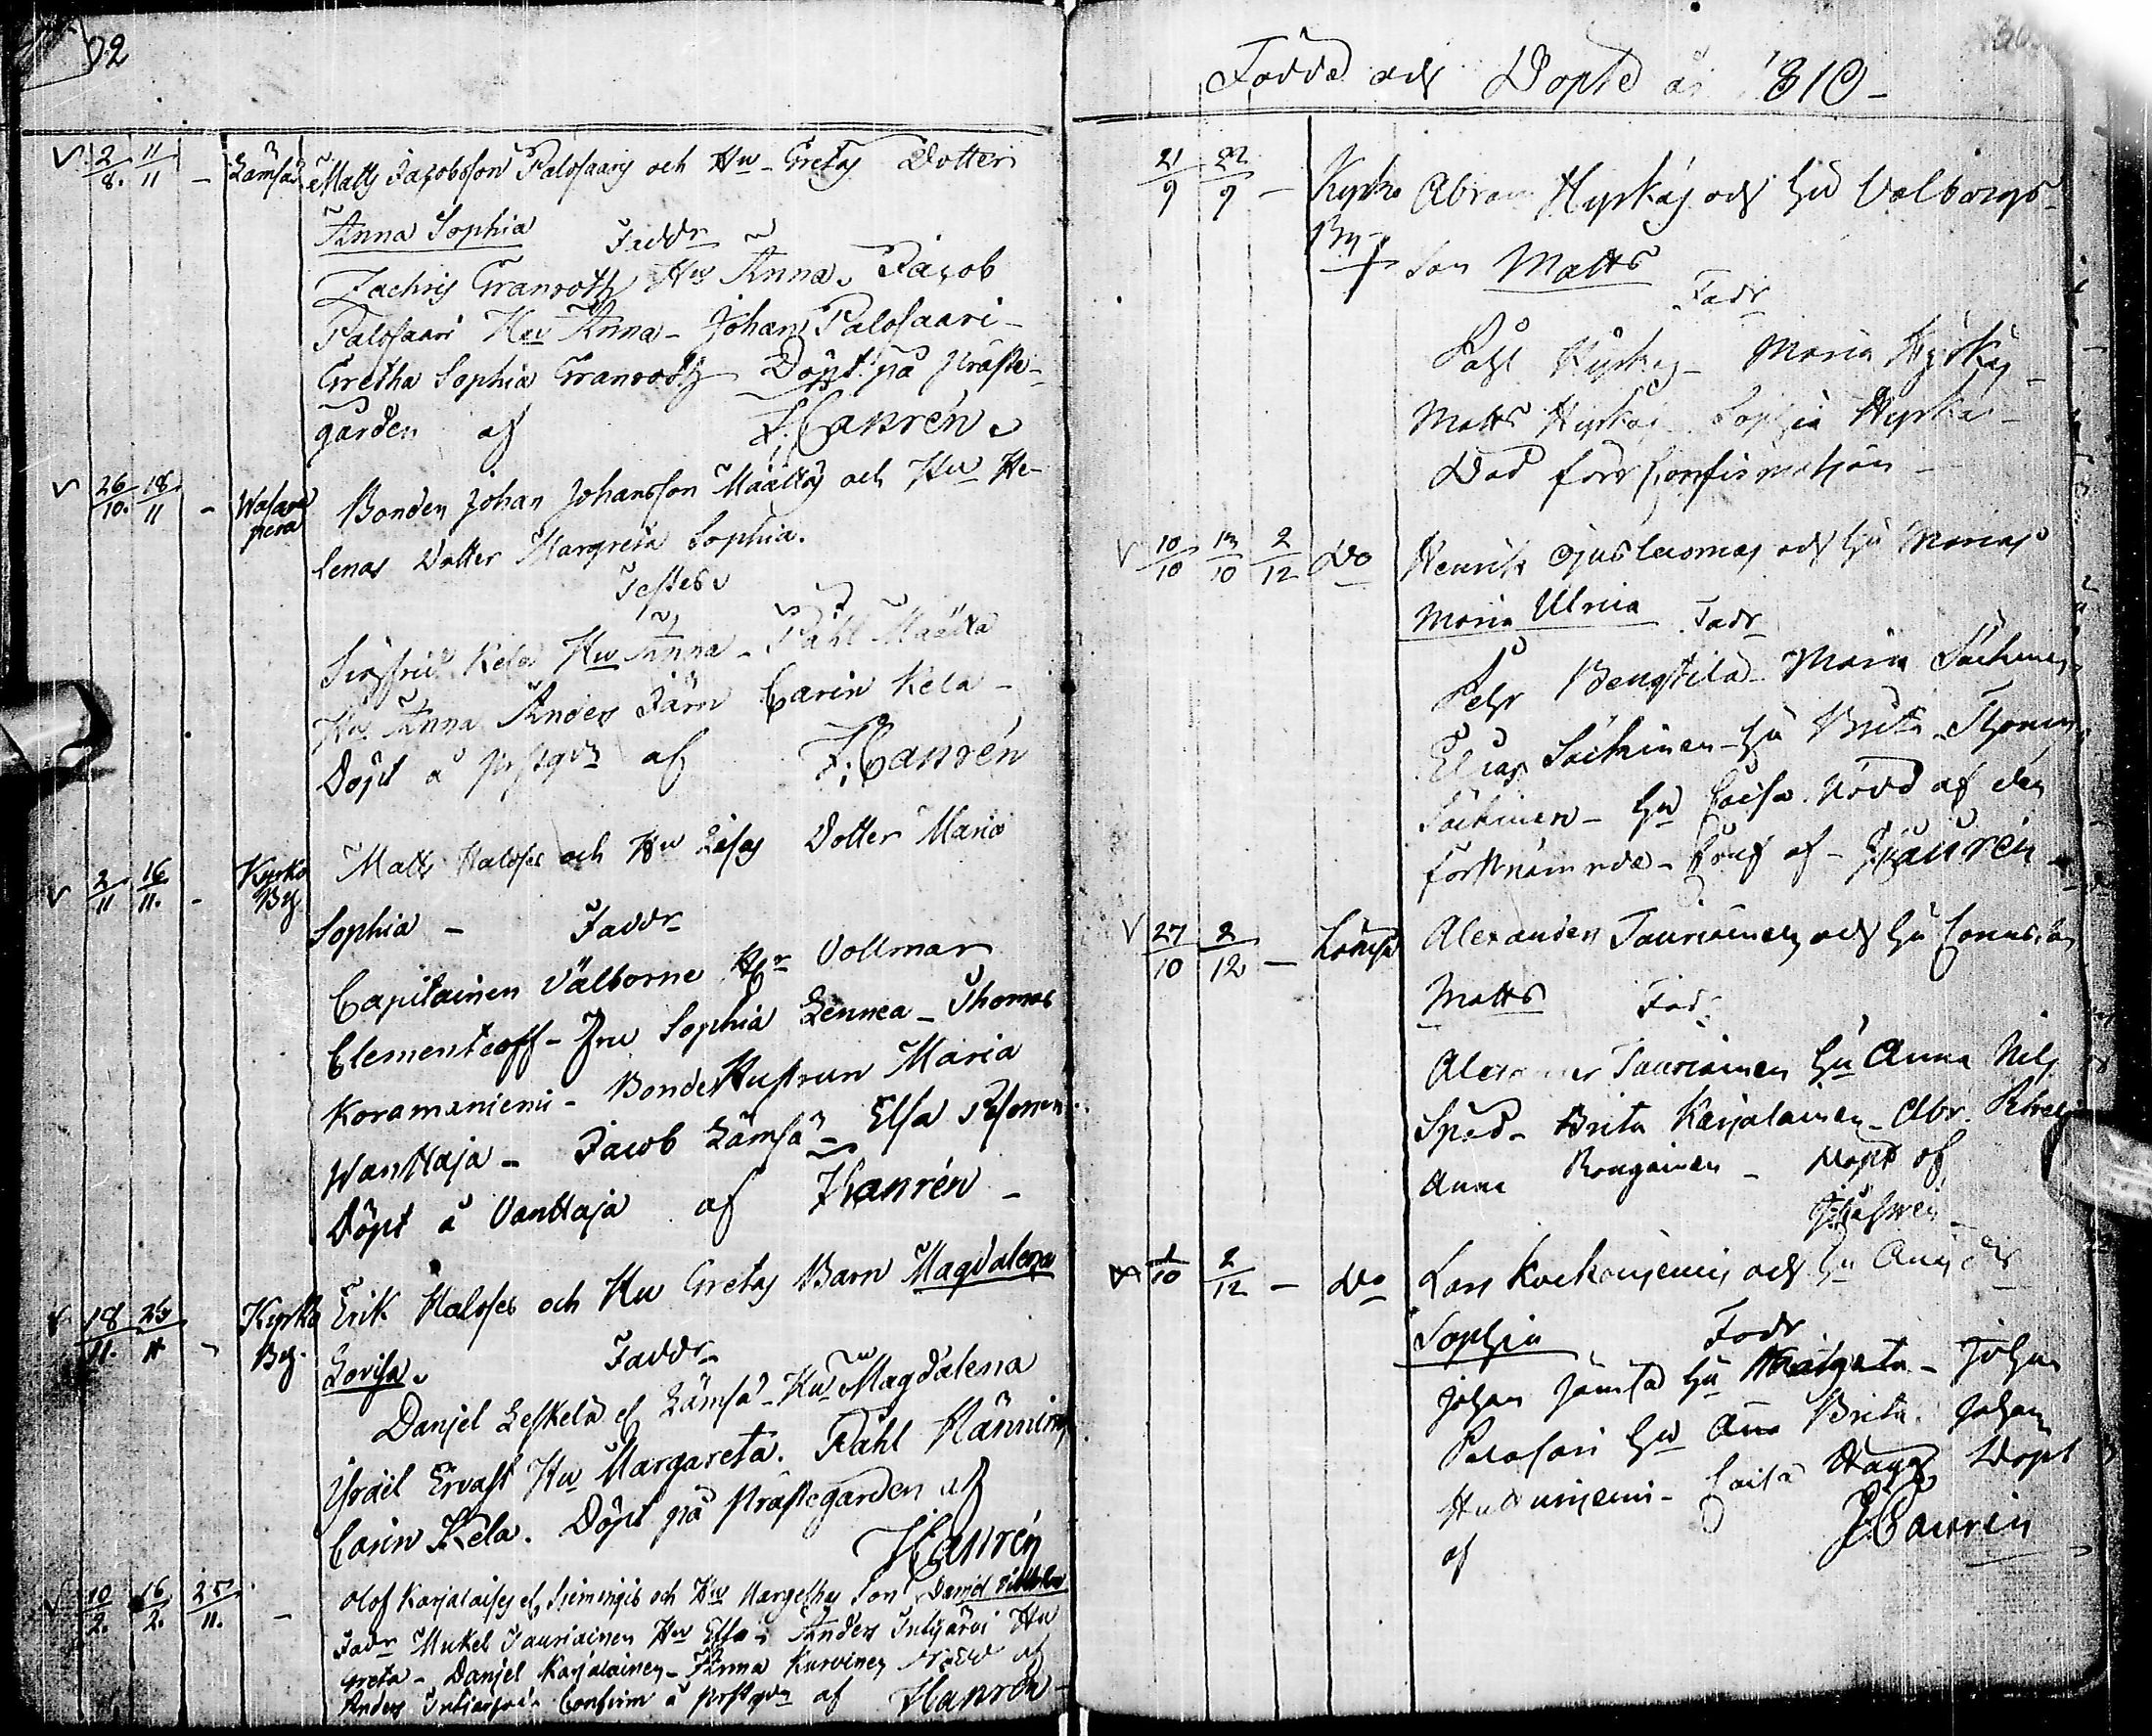 92
2/8. 11/11 - Lämsä Matts Jacobsson Palosaaris och Hu Gretas Dotter
Anna Sophia Faddr
Zachris Granroth Hu Anna, Jacob
Palosaari Hu Anna - Johan Palosaari -
Gretha Sophia Granroth Döpt på Präste-
gården af J. Canrén
26/10. 18/11 - Wasara pera Bonden Johan Johansson Määttäs och Hu He-
lenas Dotter Margreta Sophia.
Testes
Sigfrid Kela Hu Anna - Påhl Määtta
Hu Anna Anders Färm Carin Kela -
Döpt å prstgdn af J. Canrén
2/11 16/11. - Kyrko By Matts Haloses och Hu Lisas Dotter Maria
Sophia - Faddr
Capitainen Välborne Hr Vollmar
Clementeoff - Fru Sophia Lennea - Thomas
Koramoniemi - Bonde Hustrun Maria
Wanttaja - Jacob Lämsä - Elsa Pesonen
Döpt å Vanttaja af J Canrén -
18/11. 25/11 - Kyrko By. Erik Haloses och Hu Gretas Barn Magdalena
Lovisa. Faddr
Danjel Leskelä el Lämsä - Hu Magdalena
Israël Ervast Hu Margareta. Påhl Hänninen
Carin Kela. Döpt på Prästegården af
J Canrén
10/2. 16/2. 25/11. - Olof Karjalaises el Siemingis och Hu Margethas Son David
Fadr Mickel Tauriainen Hu Elsa - Anders Intijärvi Hu
Greta - Danjel Karjalainen - Anna Kurvinen Nödd af
Anders Confirm å prstgdn af J Canrén -
Födde och Döpte år 1810 -
21/9 22/9 - Kyrko By Abram Hyrkäs och Hu Valborgs
+ Son Matts
Fadr
Påhl Hyrkäs - Maria Hyrkäs
Matts Hyrkäs Sophia Hyrkäs -
Död före Confirmation -
10/10 13/10 2/12 Do Henrik och Hu Marias
Maria Ulrica Fadr
Pehr Bengtilä - Maria Säckinen
Elias Säckinen - Hu Brita - Thomas
Säckinen - Hu Caisa. Nödd af den
förstnämnde - Conf af - J Canrén
27/10 2/12 - Lämsä Alexanders Tauriainens och Hu
Matts Fadr
Alexander Tauriainen Hu Anna Nils
Brita Karjalainen - Abr.
Anna Rongainen - Döpt af
J Canrén -
1/10 2/12 - Do Lars och Hu
Sophia Fadr
Johan Jämsä Hu Margeta - Johan
Palosari Hu Ana Brita. Johan
Caisa Döpt
af J Canrén